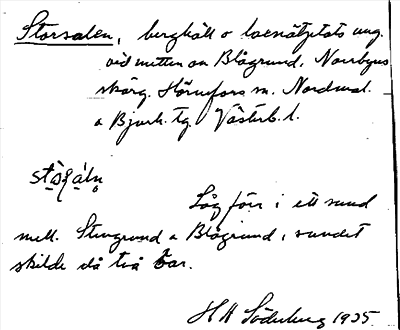 Storsalen, berghäll o laxnätplats ung.
vid mitten av Blågrund, Norrbyns
skärg. Hörnefors sn. Nordmal.
o Bjurh. tg. Västerb. l.
Låg förr i ett sund
mell. Stengrund o Blågrund, sundet
skilde då två öar.
H H Söderberg 1935